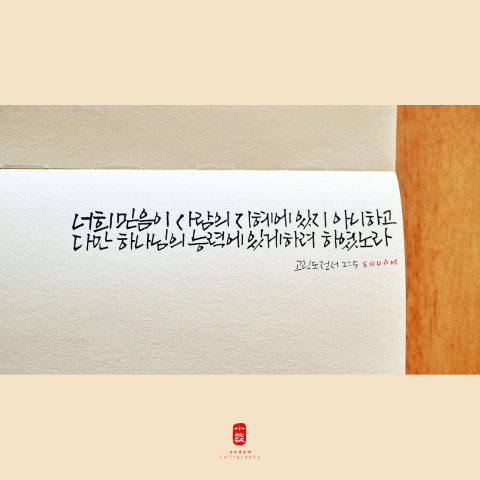 너희 믿음이 사람의 지혜에 있지 아니하고
다만 하나님의 능력에 있게하려 하였노라
고린도전서 2:5 SODAM
sodam
calligraphy